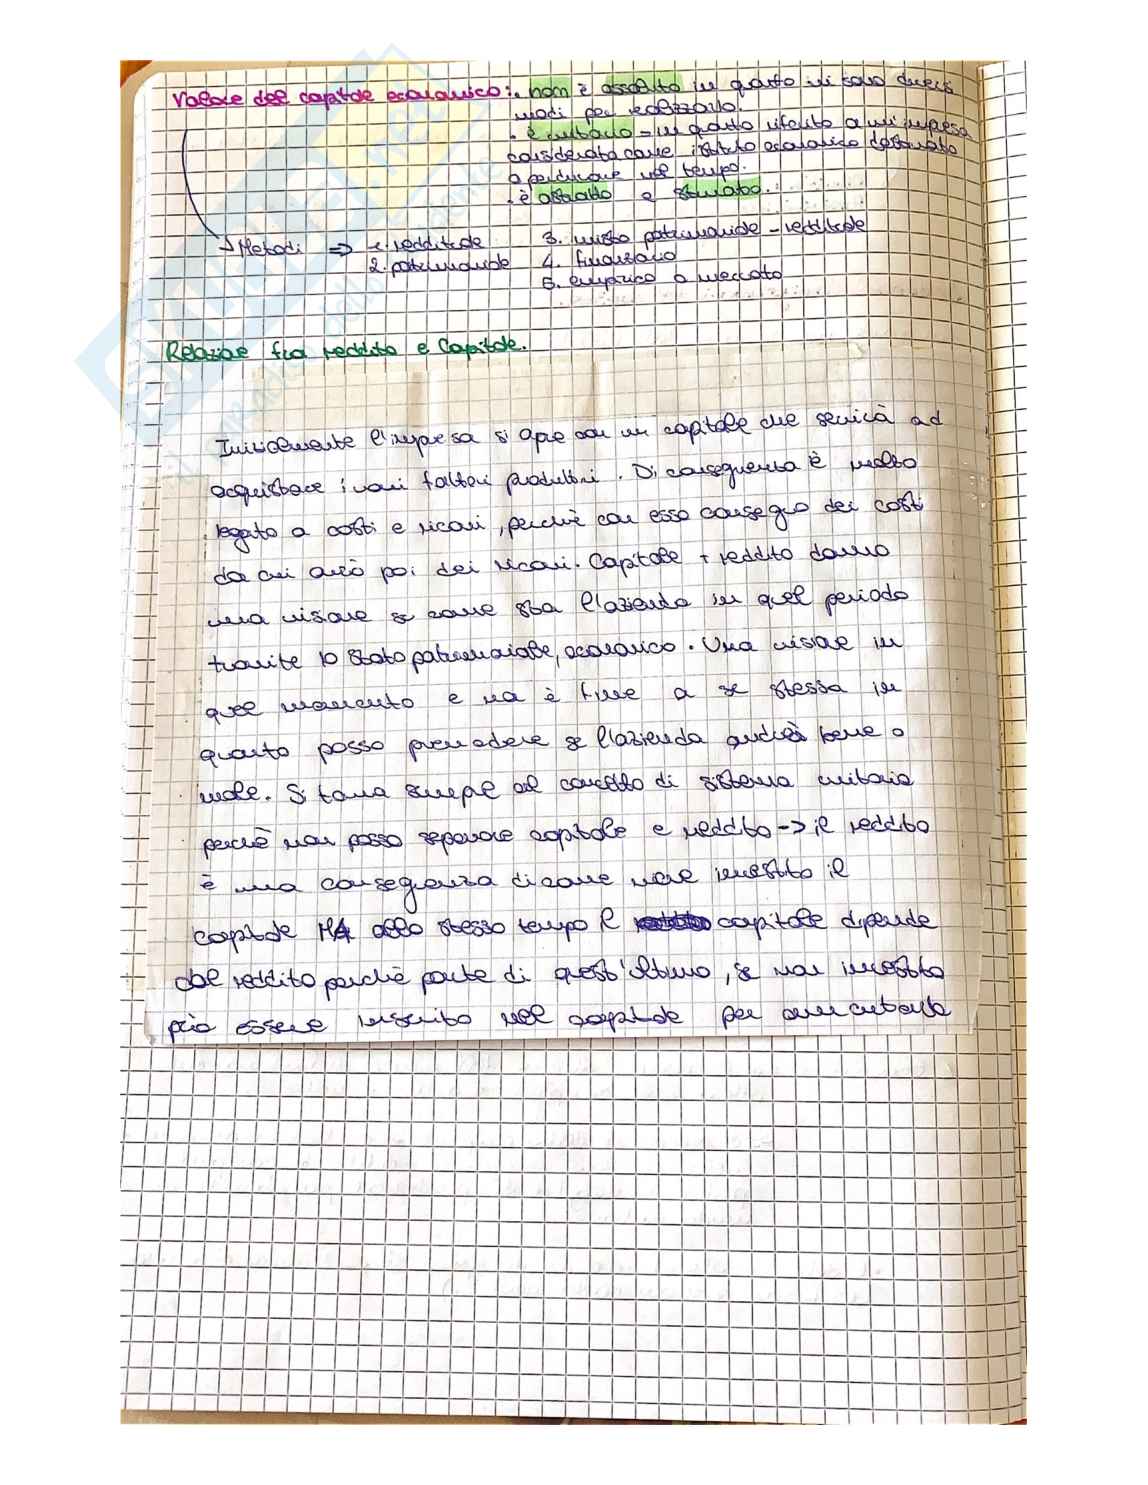 Valore del capitale economico: . non è assoluto in quanto vi sono diversi
modi per realizzarlo.
. è unitario - in quanto riferito a un'impresa
considerata come istituto economico destinato
a perdurare nel tempo.
. è astratto e stimato.
→ Metodi ⇒ 1. reddituale 3. misto patrimoniale - reddituale
2. patrimoniale 4. finanziario
5. empirico o mercato
Relazione fra reddito e Capitale.
Inizialmente l'impresa si apre con un capitale che servirà ad
acquistare i vari fattori produttivi. Di conseguenza è molto
legato a costi e ricavi, perchè con esso conseguo dei costi
da cui avrò poi dei ricavi. Capitale + reddito danno
una visione di come sta l'azienda in quel periodo
tramite lo stato patrimoniale, economico. Una visione in
quel momento e va è fine a se stessa in
quanto posso prevedere se l'azienda andrà bene o
male. Si torna sempre al concetto di sistema unitario
perchè non posso separare capitale e reddito -> il reddito
è una conseguenza di come viene investito il
capitale MA allo stesso tempo il capitale dipende
dal reddito perchè parte di quest'ultimo, se non investito
può essere inserito nel capitale per aumentarlo